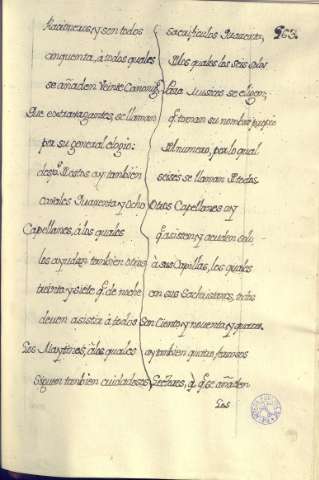 963.
y son todos
cinquenta, à todos quales
se añaden Veinte Canonig.s
Que extravagantes, se llaman
por su general elogio:
desp.s destos ay tambien
Quarenta y Ocho
Capellanes, à los quales
los ayudan tambien otros
treinta y siete q.e de noche
deven asistir à todos
Los Maytines, à los quales
Siguen tambien cuidadosos
Quarenta,
los quales los seis solos
Para Musicos se eligen,
q.e toman su nombre propio
del numero, por lo qual
seises se llaman todos
Otros Capellanes ay
q.e asisten y acuden
à sus Capillas, los quales
con sus Sachristanes, todos
Son Ciento y noventa y quatro.
ay tambien quatro famosos
Lectores, à q.e se añaden
Los